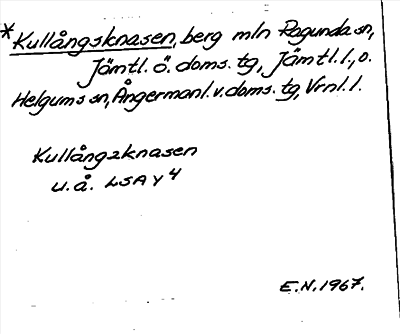 *Kullångsknasen, berg mln Ragunda sn,
Jämtl. ö. doms. tg, Jämtl. l., o.
Helgums sn, Ångermanl. v. doms. tg, Vrnl. l.
Kullångzknasen
u. å. LSA Y4
E.N. 1967.